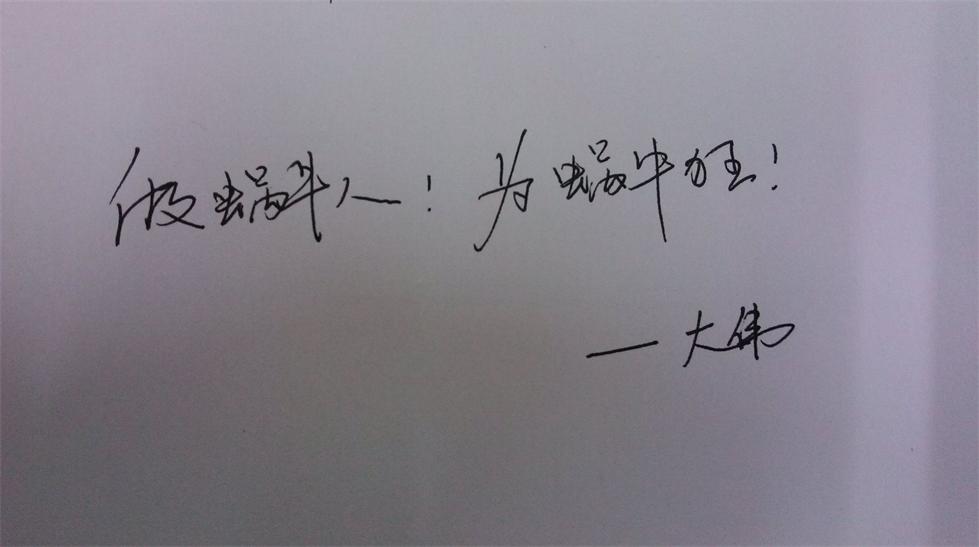 做蜗牛人！为蜗牛狂！
—大伟